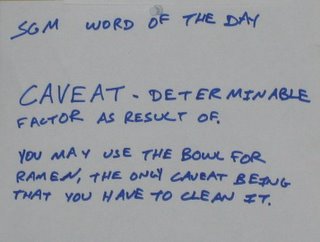 SGM WORD OF THE DAY
CAVEAT - DETERMINABLE
FACTOR AS RESULT OF.
YOU MAY USE THE BOWL FOR
RAMEN, THE ONLY CAVEAT BEING
THAT YOU HAVE TO CLEAN IT.